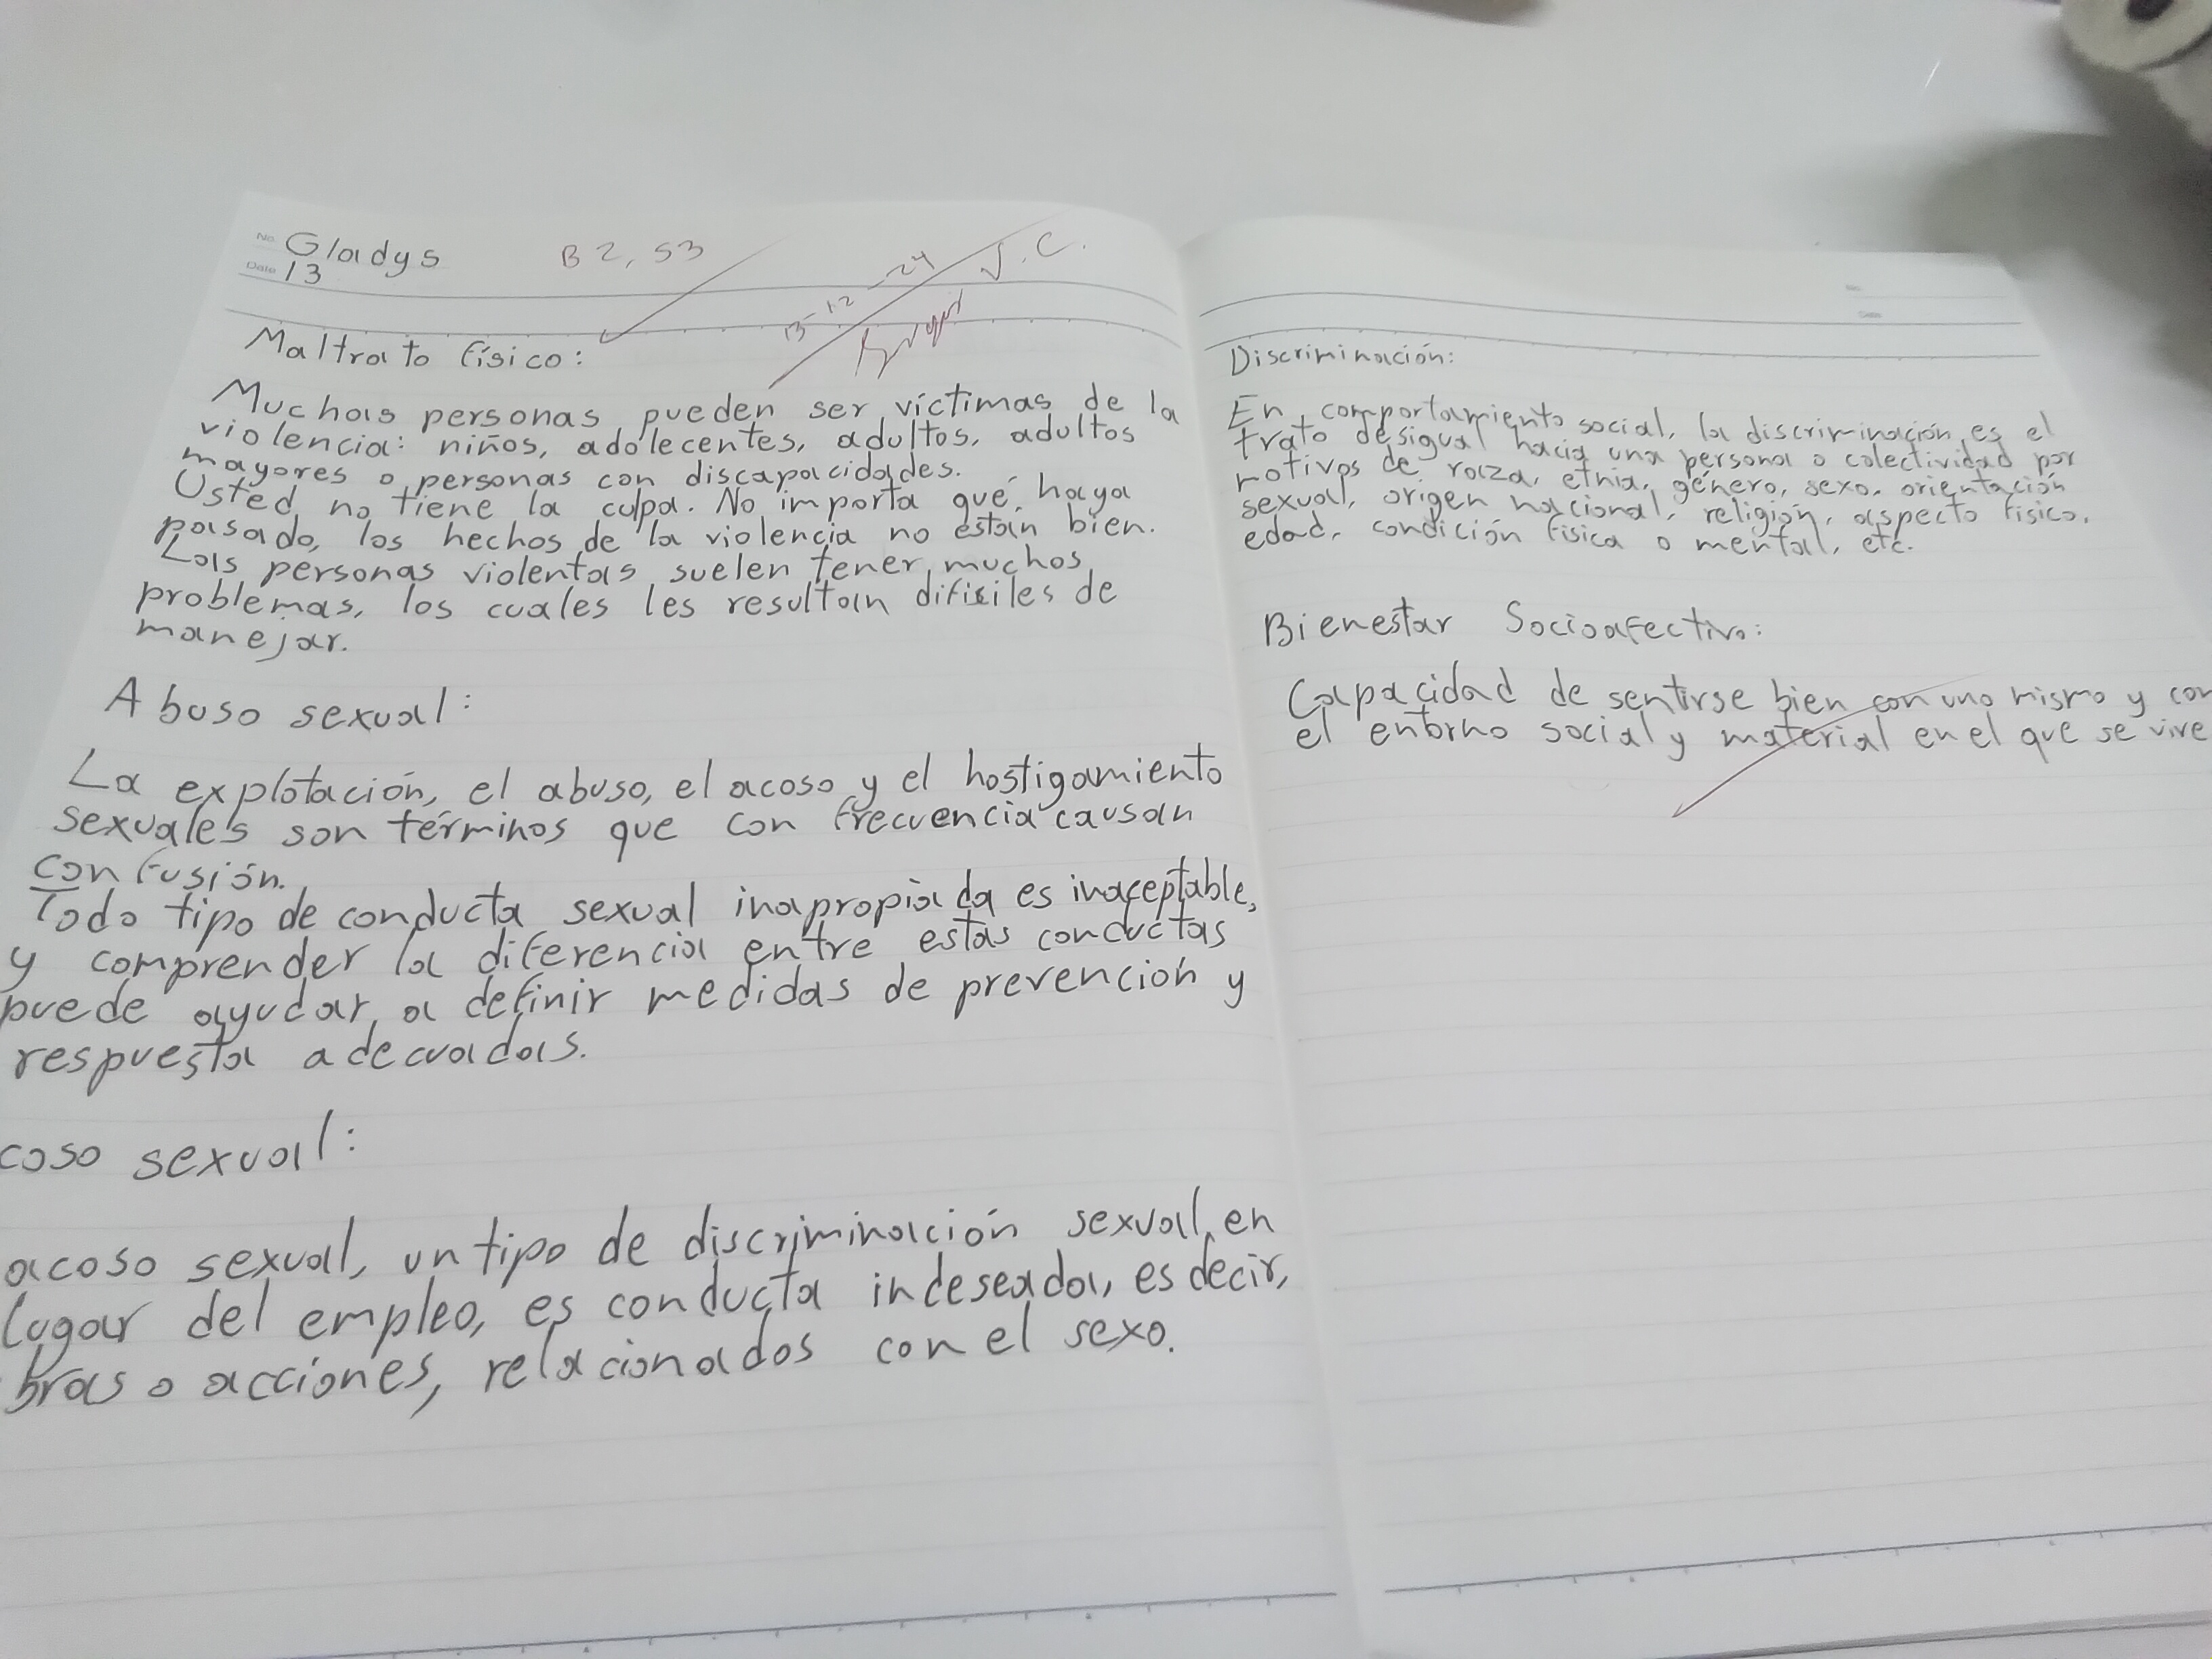 No. Gladys B2, S3
Date 13
13-12-24 J.C.
Maltrato físico:
Muchas personas pueden ser víctimas de la
violencia: niños, adolecentes, adultos, adultos
mayores o personas con discapacidades.
Usted no tiene la culpa. No importa qué haya
pasado, los hechos de la violencia no están bien.
Las personas violentas suelen tener muchos
problemas, los cuales les resultan difisiles de
manejar.
Abuso sexual:
La explotación, el abuso, el acoso y el hostigamiento
sexuales son términos que con frecuencia causan
confusión.
Todo tipo de conducta sexual inapropiada es inaceptable,
y comprender la diferencia entre estas conductas
puede ayudar a definir medidas de prevención y
respuesta adecuadas.
coso sexual:
acoso sexual, un tipo de discriminación sexual en
lugar del empleo, es conducta indeseada, es decir,
bras o acciones, relacionados con el sexo.
No.
Date
Discriminación:
En comportamiento social, la discriminación es el
trato desigual hacia una persona o colectividad por
motivos de raza, etnia, género, sexo, orientación
sexual, origen nacional, religión, aspecto físico,
edad, condición física o mental, etc.
Bienestar Socioafectivo:
Capacidad de sentirse bien con uno mismo y con
el entorno social y material en el que se vive